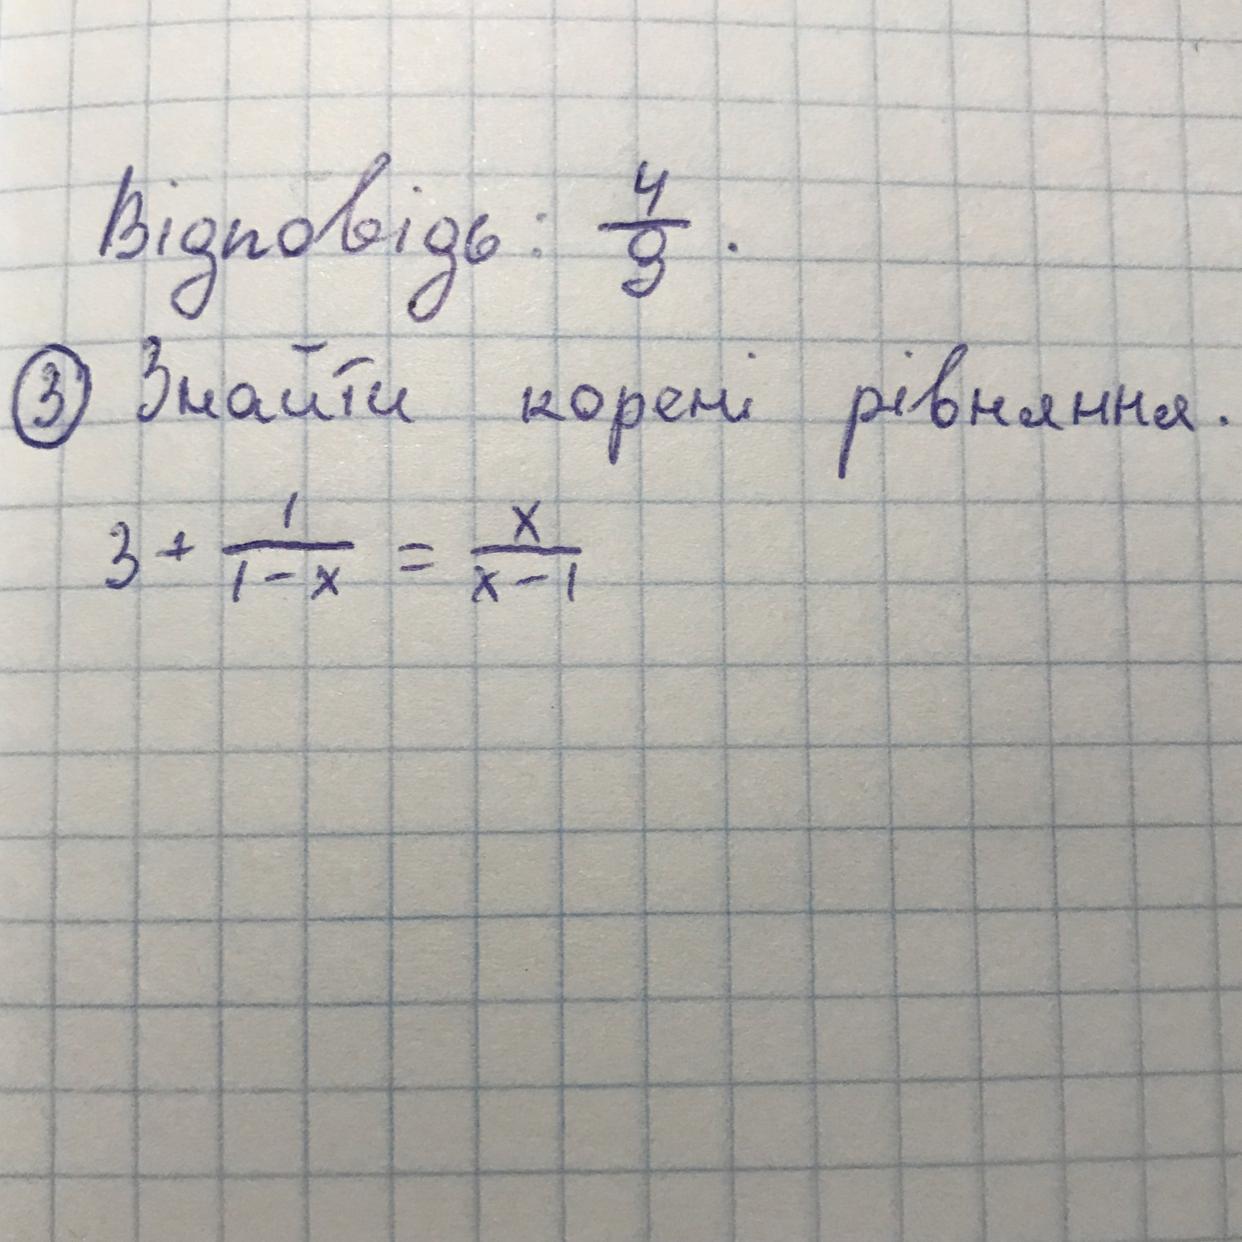 Відповідь: 4/9.
③ Знайти корені рівняння.
3 + 1/(1-x) = x/(x-1)